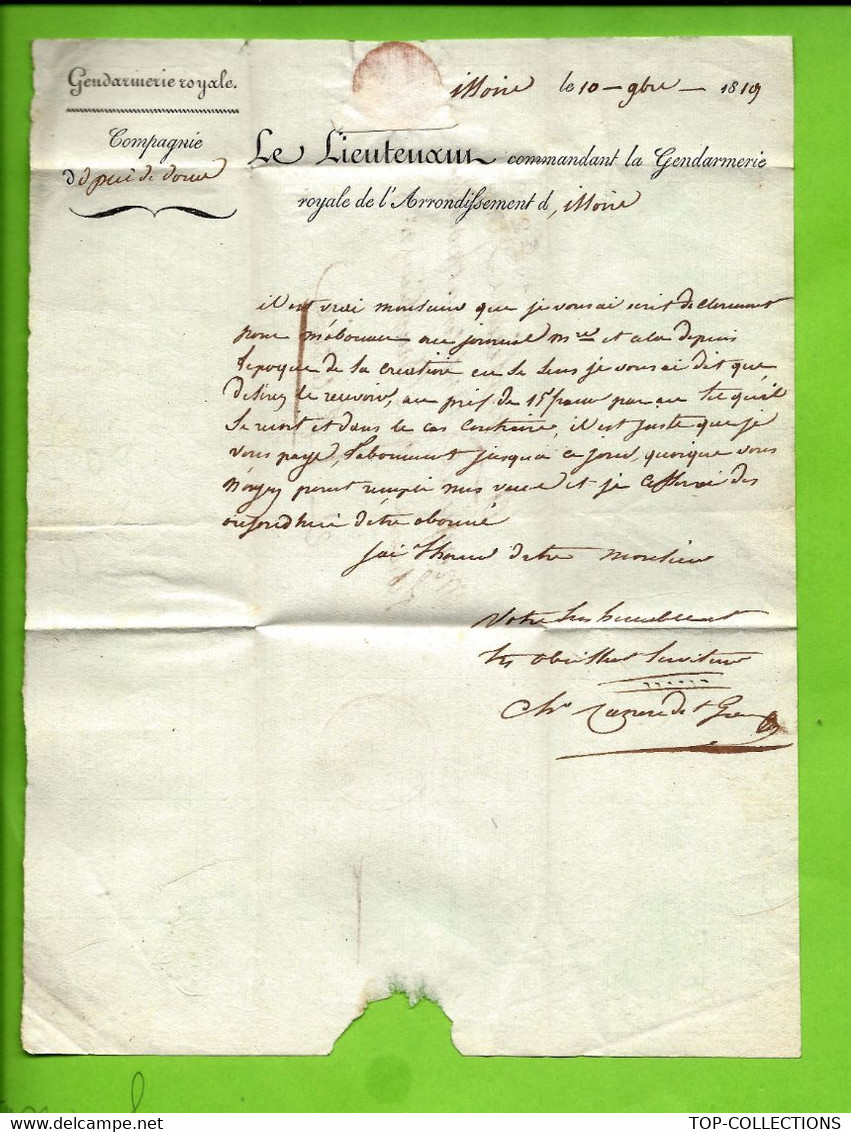 Gendarmerie royale.
Compagnie
d puis de dome
issoire le 10 - 9bre - 1819
Le Lieutenant commandant la Gendarmerie
royale de l'Arrondissement d, issoire
il est vrai monsieur que je vous ai écrit de clermont
pour m'abonner au journal mre et a la depuis
l'epoque de sa creation en ce sens je vous ai dit que
desirez le recevoir, au prix de 15 francs par an tel qu'il
se and dans le cas contraire, il est juste que je
vous paye, l'abonment jusqua ce jour, quoique vous
n'ayez point rempli mes vues et je cesserai des
aujourdhui d'etre abonné
jai l'honneur d'etre monsieur
votre tres humble et
tres obeissant serviteur
Chr de St
TOP-COLLECTIONS